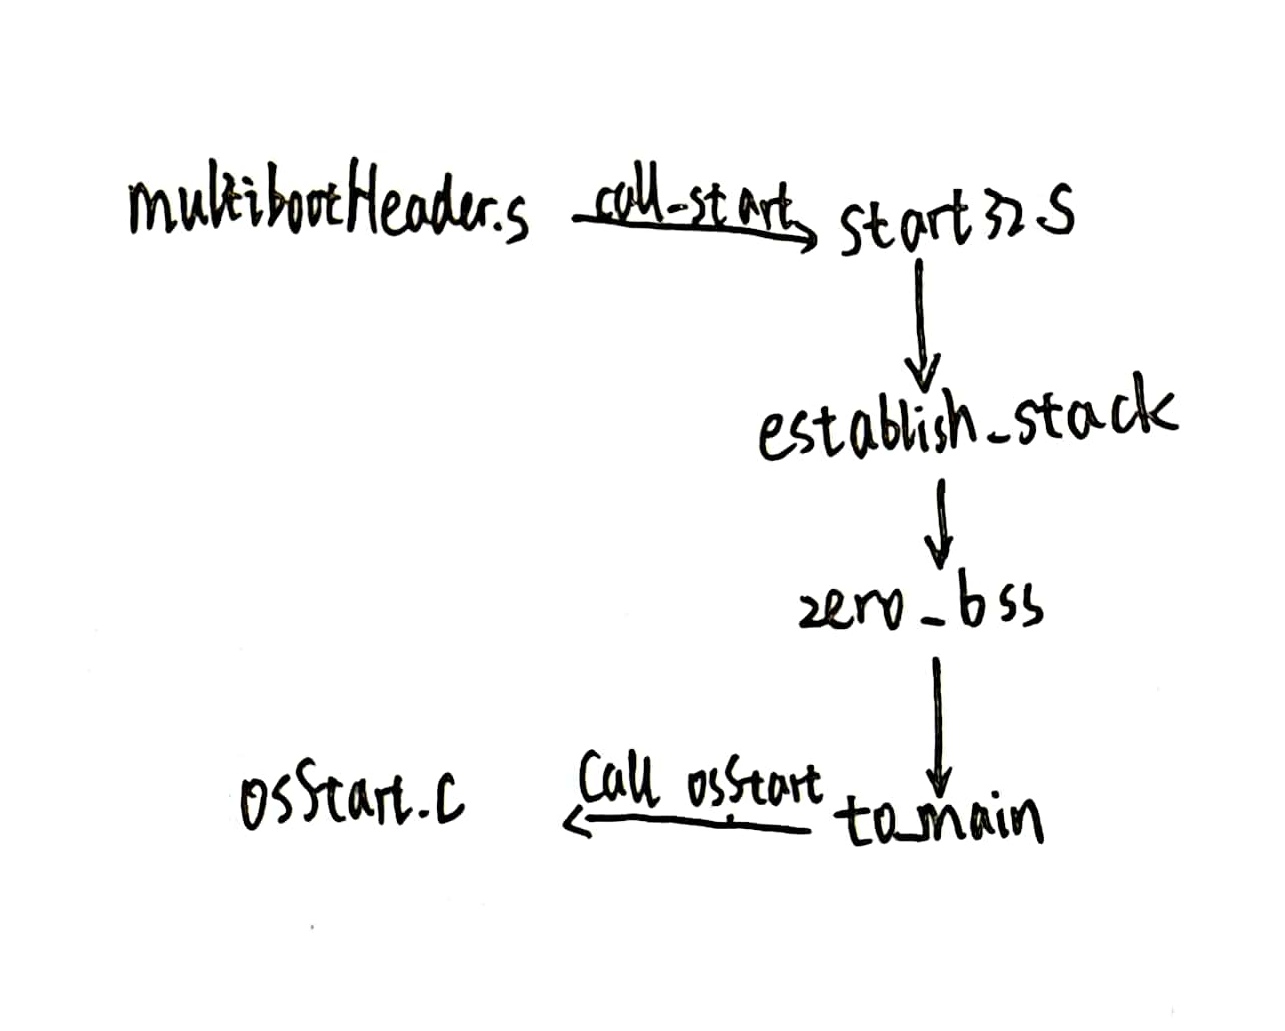 multibootHeader.s call_start start32.S
establish_stack
zero_bss
osStart.c Call osStart to_main